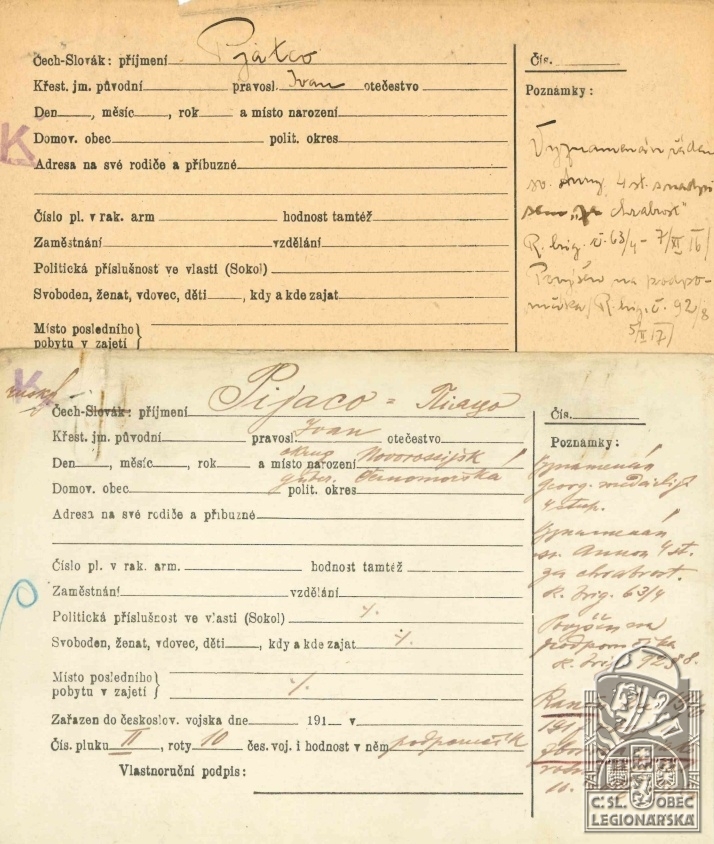 Čech-Slovák: příjmení Pjátco
Čís.
Křest. jm. původní pravosl. Ivan otečestvo
Poznámky:
Den , měsíc , rok a místo narození
Domov. obec polit. okres
K
Adresa na své rodiče a příbuzné
Vyznamenán řádem
sv. Anny 4 st. s nadpi
sem „za chrabrost"
R. brig. č. 63/4 - 7/XI 16/
Povýšen na podpo-
ručíka/R. brig. č. 92/8
5/II 17/
Číslo pl. v rak. arm hodnost tamtéž
Zaměstnání vzdělání
Politická příslušnost ve vlasti (Sokol)
Svoboden, ženat, vdovec, děti , kdy a kde zajat
Místo posledního
pobytu v zajetí
K
Čech-Slovák: příjmení Pijaco =
Čís.
Křest. jm. původní pravosl. Ivan otečestvo
Poznámky:
okrug Novorossijsk
Den , měsíc , rok a místo narození
guber. Černomorská
Domov. obec polit. okres
Adresa na své rodiče a příbuzné
georg. medailí
4 stup.
sv. Annou 4 st.
za chrabrost.
R. brig. 63/4
Povýšen na
podporučíka
R. brig.
Číslo pl. v rak. arm. hodnost tamtéž
Zaměstnání vzdělání
Politická příslušnost ve vlasti (Sokol) ·/.
Svoboden, ženat, vdovec, děti , kdy a kde zajat ·/.
Místo posledního
pobytu v zajetí ·/.
Zařazen do českoslov. vojska dne 191 v
Čís. pluku II , roty 10 čes. voj. i hodnost v něm podporučík
Vlastnoruční podpis:
Č:SL. OBEC
LEGIONÁŘSKÁ